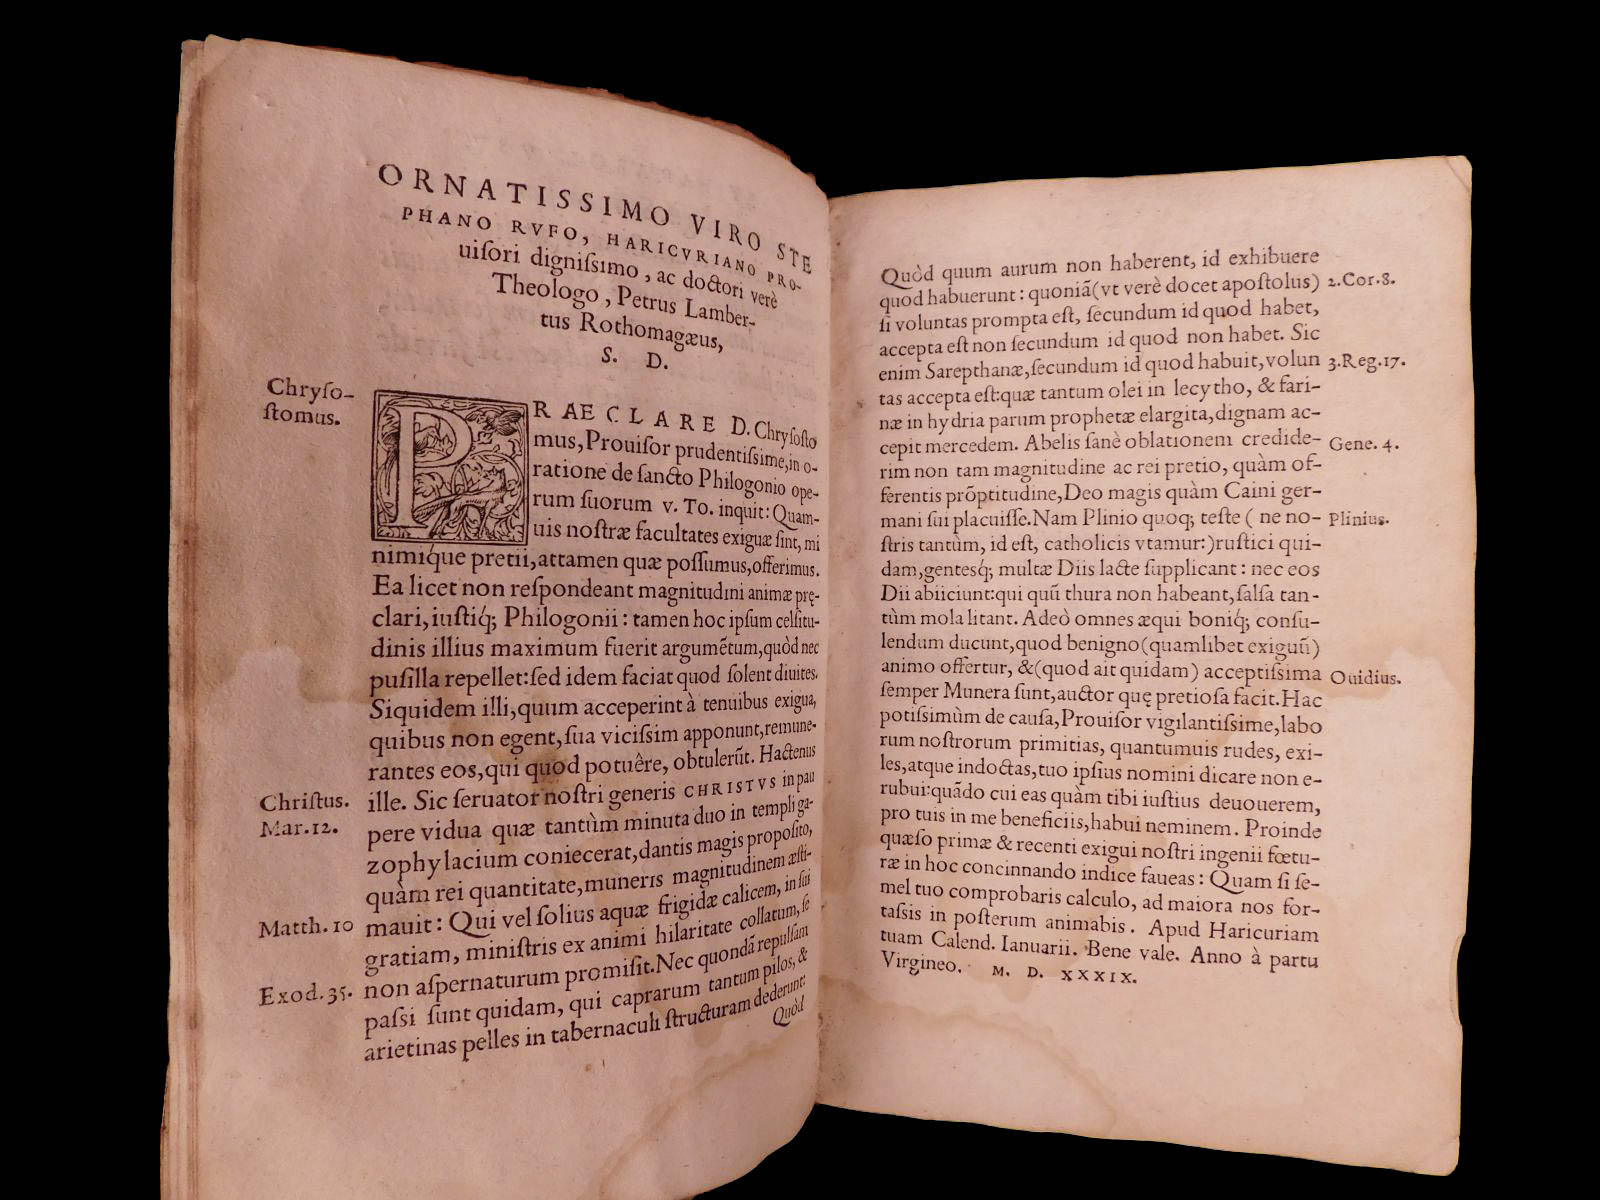 ORNATISSIMO VIRO STE
PHANO RVFO, HARICVRIANO PRO-
uiſori digniſsimo, ac doctori verè
Theologo, Petrus Lamber-
tus Rothomagæus,
S. D.
Chryſo-
ſtomus.
PRAECLARE D. Chryſoſto
mus, Prouiſor prudentiſsime, in o-
ratione de ſancto Philogonio ope-
rum ſuorum v. To. inquit: Quam-
uis noſtræ facultates exiguæ ſint, mi
nimiq́ue pretii, attamen quæ poſſumus, offerimus.
Ea licet non reſpondeant magnitudini animæ prę-
clari, iuſtiq́; Philogonii: tamen hoc ipſum celſitu-
dinis illius maximum fuerit argumētum, quòd nec
puſilla repellet: ſed idem faciat quod ſolent diuites.
Siquidem illi, quum acceperint à tenuibus exigua,
quibus non egent, ſua viciſsim apponunt, remune-
rantes eos, qui quod potuêre, obtulerūt. Hactenus
ille. Sic ſeruator noſtri generis CHRISTVS in pau
pere vidua quæ tantùm minuta duo in templi ga-
zophylacium coniecerat, dantis magis propoſito,
quàm rei quantitate, muneris magnitudinem æſti-
mauit: Qui vel ſolius aquæ frigidæ calicem, in ſui
gratiam, miniſtris ex animi hilaritate collatum, ſe
non aſpernaturum promiſit. Nec quondā repulſam
paſsi ſunt quidam, qui caprarum tantum pilos, &
arietinas pelles in tabernaculi ſtructuram dederunt:
Quòd
Chriſtus.
Mar. 12.
Matth. 10
Exod. 35.
Quòd quum aurum non haberent, id exhibuere
quod habuerunt: quoniā (vt verè docet apoſtolus)
ſi voluntas prompta eſt, ſecundum id quod habet,
accepta eſt non ſecundum id quod non habet. Sic
enim Sarepthanæ, ſecundum id quod habuit, volun
tas accepta eſt: quæ tantum olei in lecytho, & fari-
næ in hydria parum prophetæ elargita, dignam ac-
cepit mercedem. Abelis ſanè oblationem credide-
rim non tam magnitudine ac rei pretio, quàm of-
ferentis prōptitudine, Deo magis quàm Caini ger-
mani ſui placuiſſe. Nam Plinio quoq; teſte ( ne no-
ſtris tantùm, id eſt, catholicis vtamur:) ruſtici qui-
dam, genteſq́; multæ Diis lacte ſupplicant: nec eos
Dii abiiciunt: qui quū thura non habeant, ſalſa tan-
tùm mola litant. Adeò omnes æqui boniq́; conſu-
lendum ducunt, quod benigno (quamlibet exiguū)
animo offertur, & (quod ait quidam) acceptiſsima
ſemper Munera ſunt, auctor quę pretioſa facit. Hac
potiſsimùm de cauſa, Prouiſor vigilantiſsime, labo
rum noſtrorum primitias, quantumuis rudes, exi-
les, atque indoctas, tuo ipſius nomini dicare non e-
rubui: quādo cui eas quàm tibi iuſtius deuouerem,
pro tuis in me beneficiis, habui neminem. Proinde
quæſo primæ & recenti exigui noſtri ingenii fœtu-
ræ in hoc concinnando indice faueas: Quam ſi ſe-
mel tuo comprobaris calculo, ad maiora nos for-
taſsis in poſterum animabis. Apud Haricuriam
tuam Calend. Ianuarii. Bene vale. Anno à partu
Virgineo. M. D. XXXIX.
2. Cor. 8.
3. Reg. 17.
Gene. 4.
Plinius.
Ouidius.